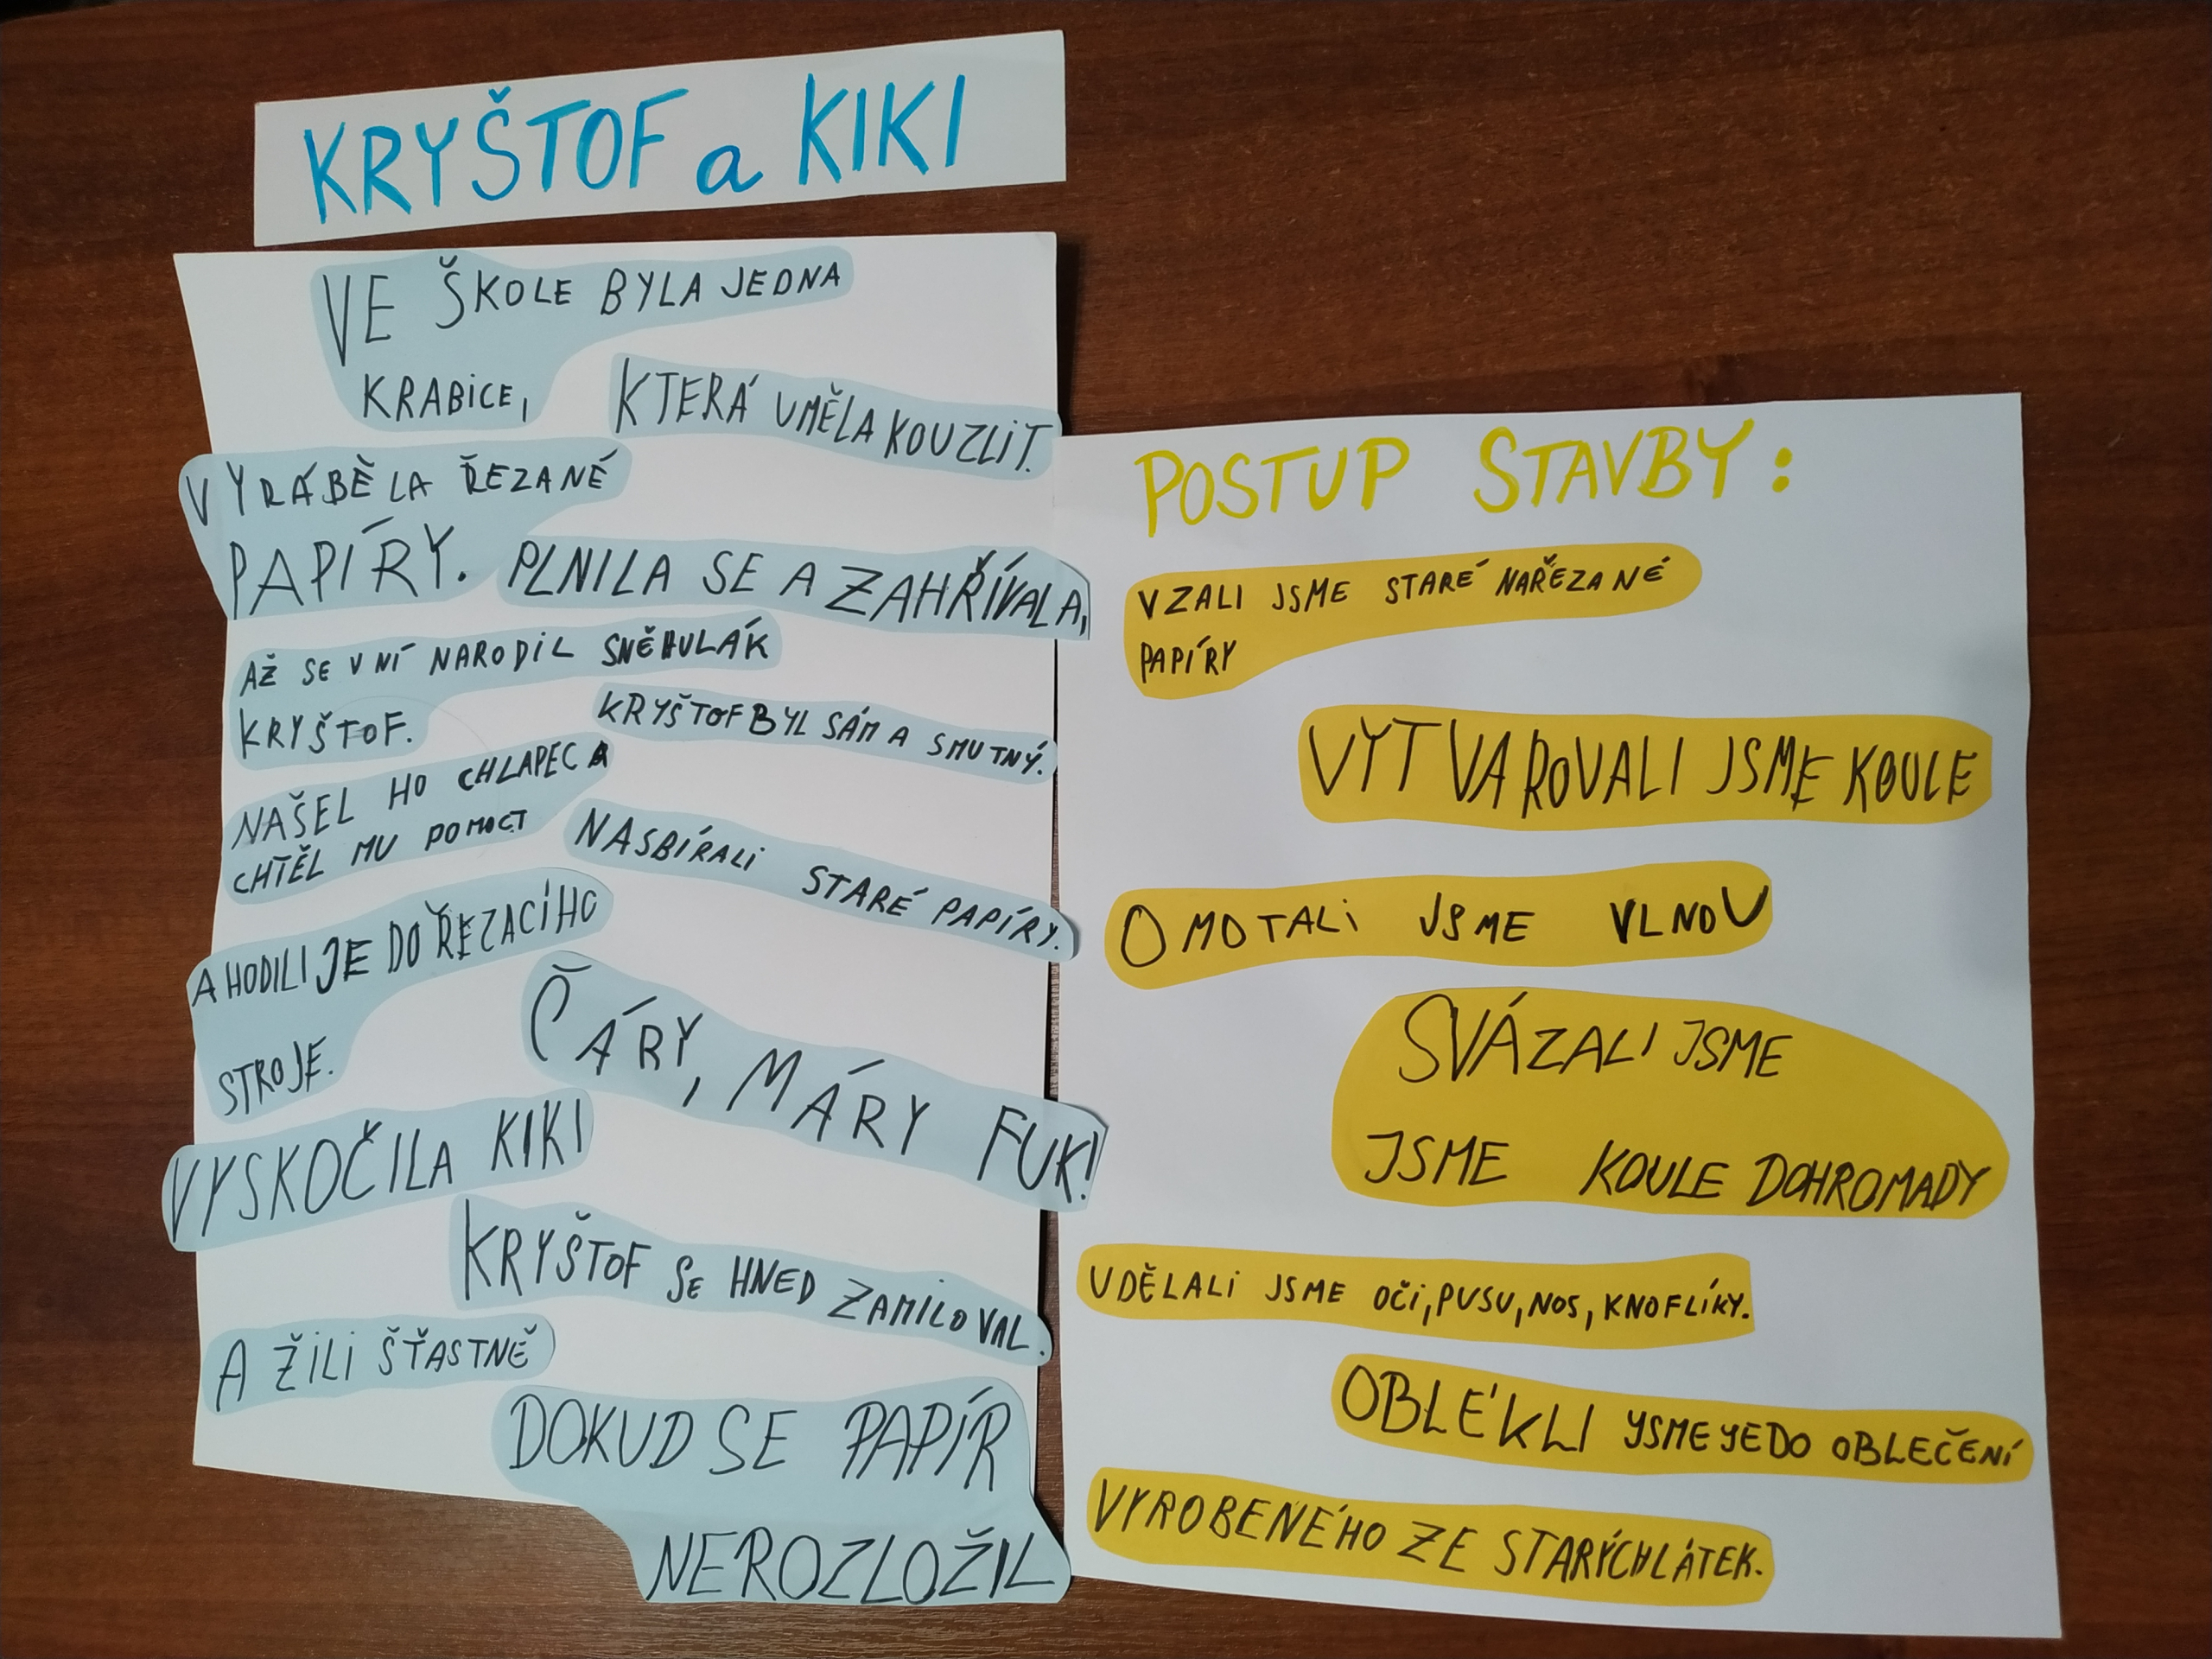 KRYŠTOF a KIKI
VE ŠKOLE BYLA JEDNA
KRABiCE,
KTERÁ UMĚLA KOUZLiT.
VYRÁBĚLA ŘEZANÉ
PAPÍRY.
PLNILA SE A ZAHŘÍVALA,
AŽ SE V NÍ NARODiL SNĚHULÁK
KRYŠTOF.
KRYŠTOF BYL SÁM A SMUTNÝ.
NAŠEL HO CHLAPEC A
CHTĚL MU POMOCT
NASBÍRALi STARÉ PAPÍRY.
A HODILI JE DO ŘEZACÍHO
STROJE.
ČÁRY, MÁRY FUK!
VYSKOČILA KIKI
KRYŠTOF SE HNED ZAMiLOVAL.
A ŽiLi ŠŤASTNĚ
DOKUD SE PAPÍR
NEROZLOŽIL
POSTUP STAVBY:
VZALI JSME STARÉ NAŘEZANÉ
PAPÍRY
VYTVAROVALI JSME KOULE
OMOTALi JSME VLNOU
SVÁZALI JSME
JSME KOULE DOHROMADY
UDĚLALi JSME OČi, PUSU, NOS, KNOFLÍKY.
OBLÉKLI YSME YE DO OBLEČENÍ
VYROBENÉHO ZE STARÝCH LÁTEK.